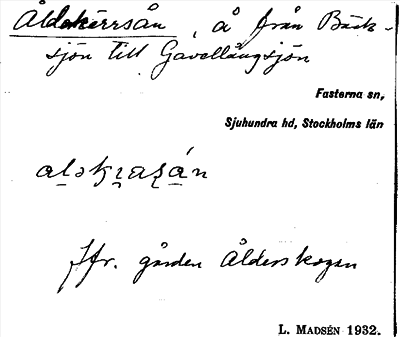 Ålderkärrsån, å från Bäck-
sjön till Gavellångsjön
Fasterna sn,
Sjuhundra hd, Stockholms län
Jfr. gården Ålderskogen
L. MADSÉN 1932.